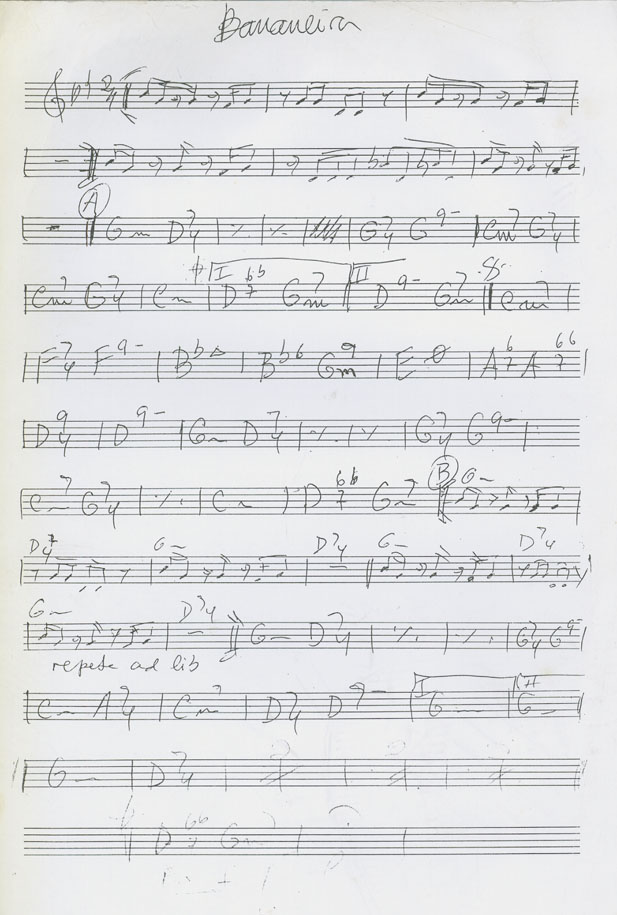 Bananeira
2/4
A
Gm D7/4 ٪ ٪ G7/4 G9- Cm7 G7/4
I II
Cm7 G7/4 Cm D7b6 Gm7 D9- Gm7 Cm7
F7/4 F9- Bb△ Bb6 Gm9 EØ A67 A7b6
D94 D9- Gm D7/4 ٪ ٪ G7/4 G9-
B Gm
Cm7 G7/4 ٪ Cm D7b6 Gm7
D7/4 Gm D7/4 Gm D7/4
Gm D7/4
Gm D7/4 ٪ ٪ G7/4 G9-
repete ad lib
I II
Cm A7/4 Cm7 D7/4 D9- Gm Gm
Gm D7/4
D7b6 Gm7